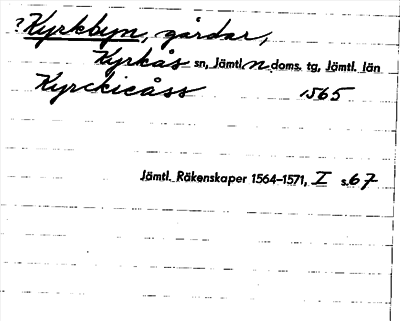 ?Kyrkbyn, gårdar,
Kyrkås sn, Jämtl. n. doms. tg, Jämtl. län
Kyrckicåss 1565
Jämtl. Räkenskaper 1564–1571, I s. 67